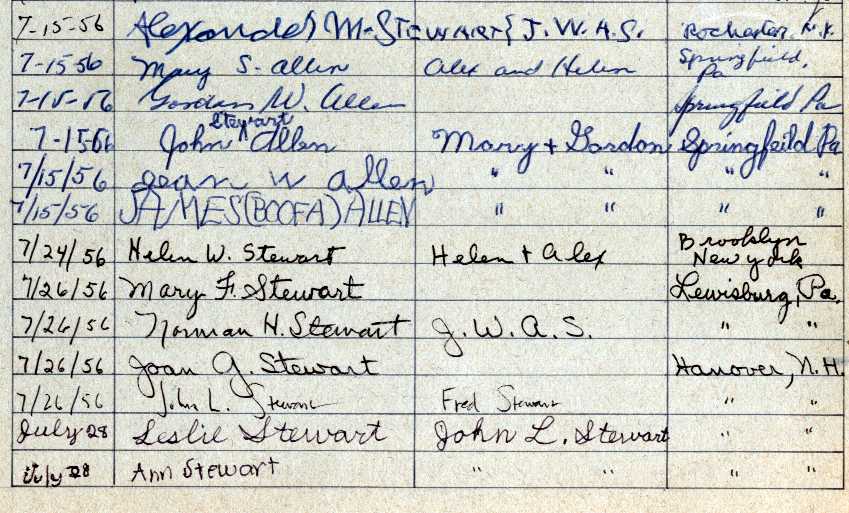 7-15-56 Alexander M. STEWART J.W.A.S. Rochester, N.Y.
7-15 56 Mary S. Allen Alex and Helen Springfield, Pa
7-15-56 Gordon W. Allen Springfield Pa
7-1556 John Stewart Allen Mary + Gordon Springfeild Pa
7/15/56 Jean W Allen " " " "
7/15/56 JAMES (BOOFA) ALLEN " " " "
7/24/56 Helen W. Stewart Helen + Alex Brooklyn New York
7/26/56 Mary F. Stewart Lewisburg, Pa.
7/26/56 Norman H. Stewart J.W.A.S. " "
7/26/56 Joan G. Stewart Hanover, N.H.
7/26/56 John L. Stewart Fred Stewart " "
July 28 Leslie Stewart John L. Stewart " "
July 28 Ann Stewart " " " "